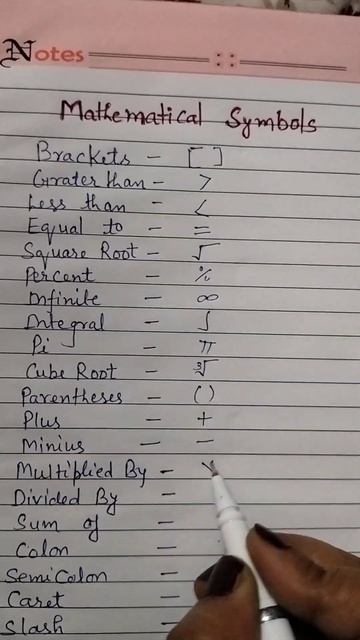 Notes
Mathematical Symbols
Brackets - [ ]
Grater than - >
Less than - <
Equal to - =
Square Root - √
Percent - %
Infinite - ∞
Integral - ∫
Pi - π
Cube Root - ∛
Parentheses - ( )
Plus - +
Minius - -
Multiplied By -
Divided By -
Sum of -
Colon -
SemiColon -
Caret -
Slash -